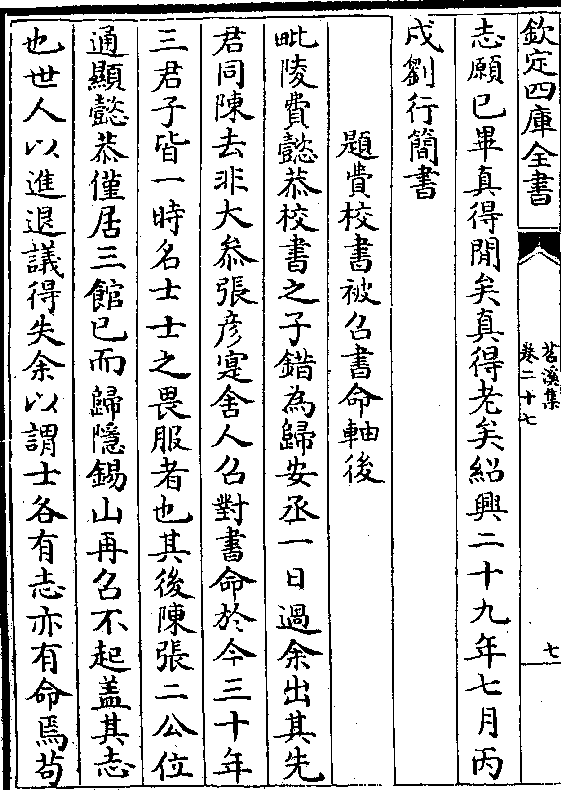 欽定四庫全書
苕溪集
卷二十七
七
志願已畢真得閒矣真得老矣紹興二十九年七月丙
戌劉行簡書
題費校書被召書命軸後
毗陵費懿恭校書之子錯為歸安丞一日過余出其先
君同陳去非大叅張彦寔舍人召對書命於今三十年
三君子皆一時名士士之畏服者也其後陳張二公位
通顯懿恭僅居三館已而歸隱錫山再召不起盖其志
也世人以進退議得失余以謂士各有志亦有命焉苟